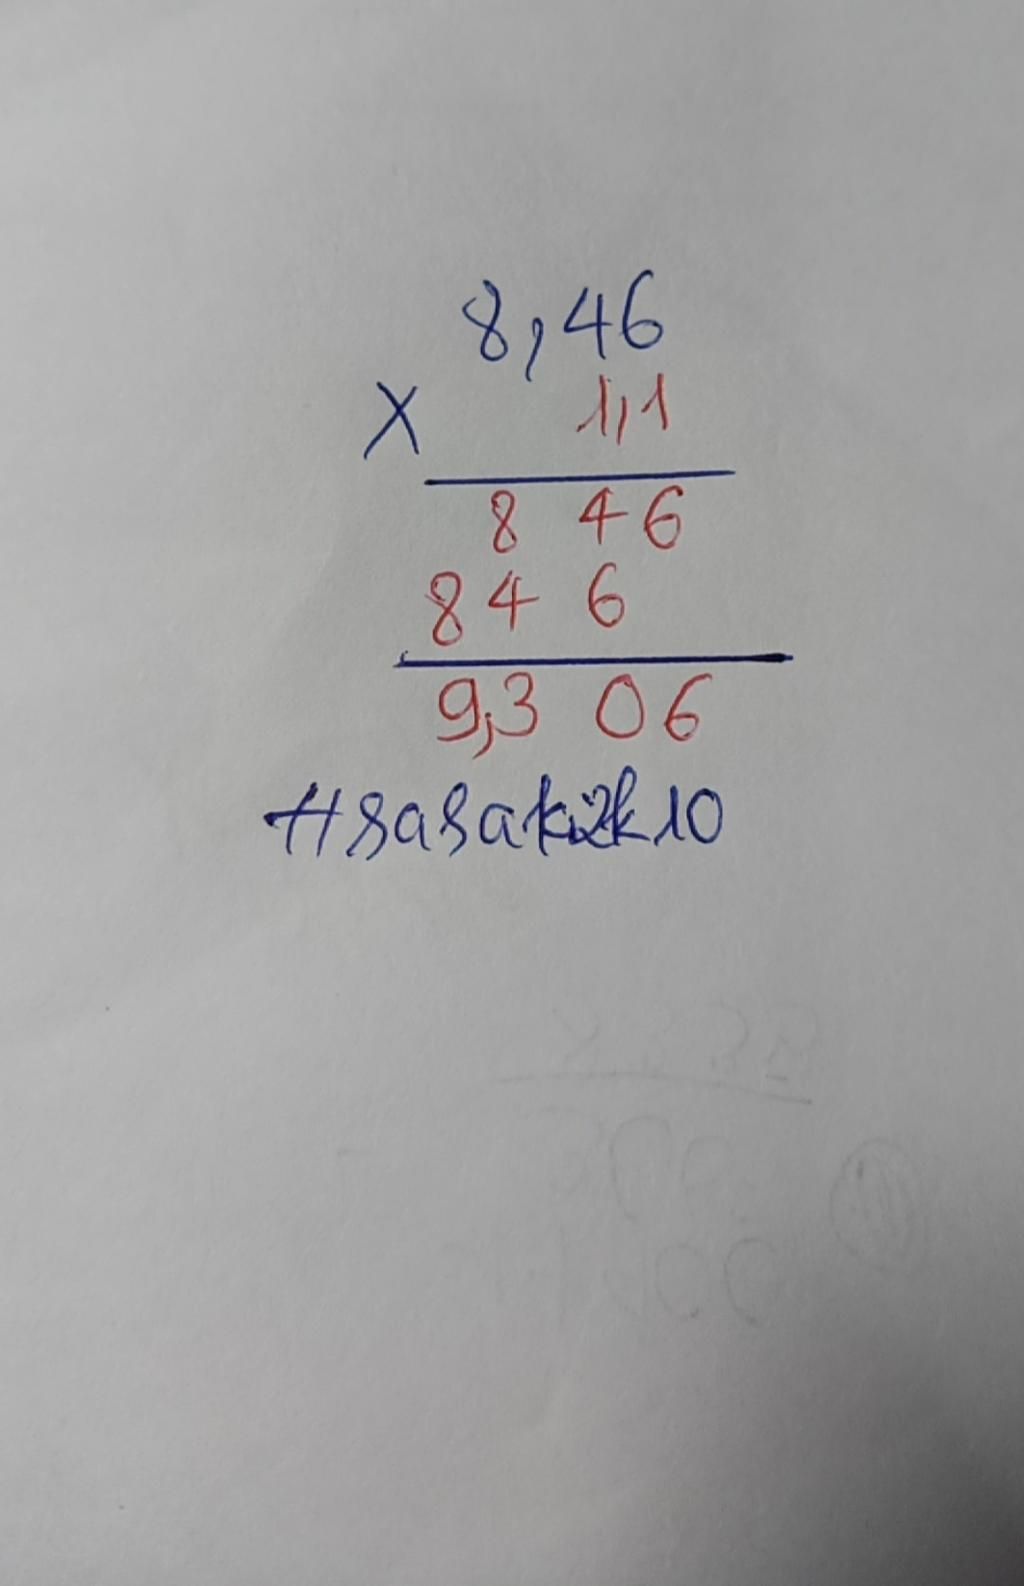 8,46
X 1,1
8 46
84 6
9,3 06
#sasaki2k10